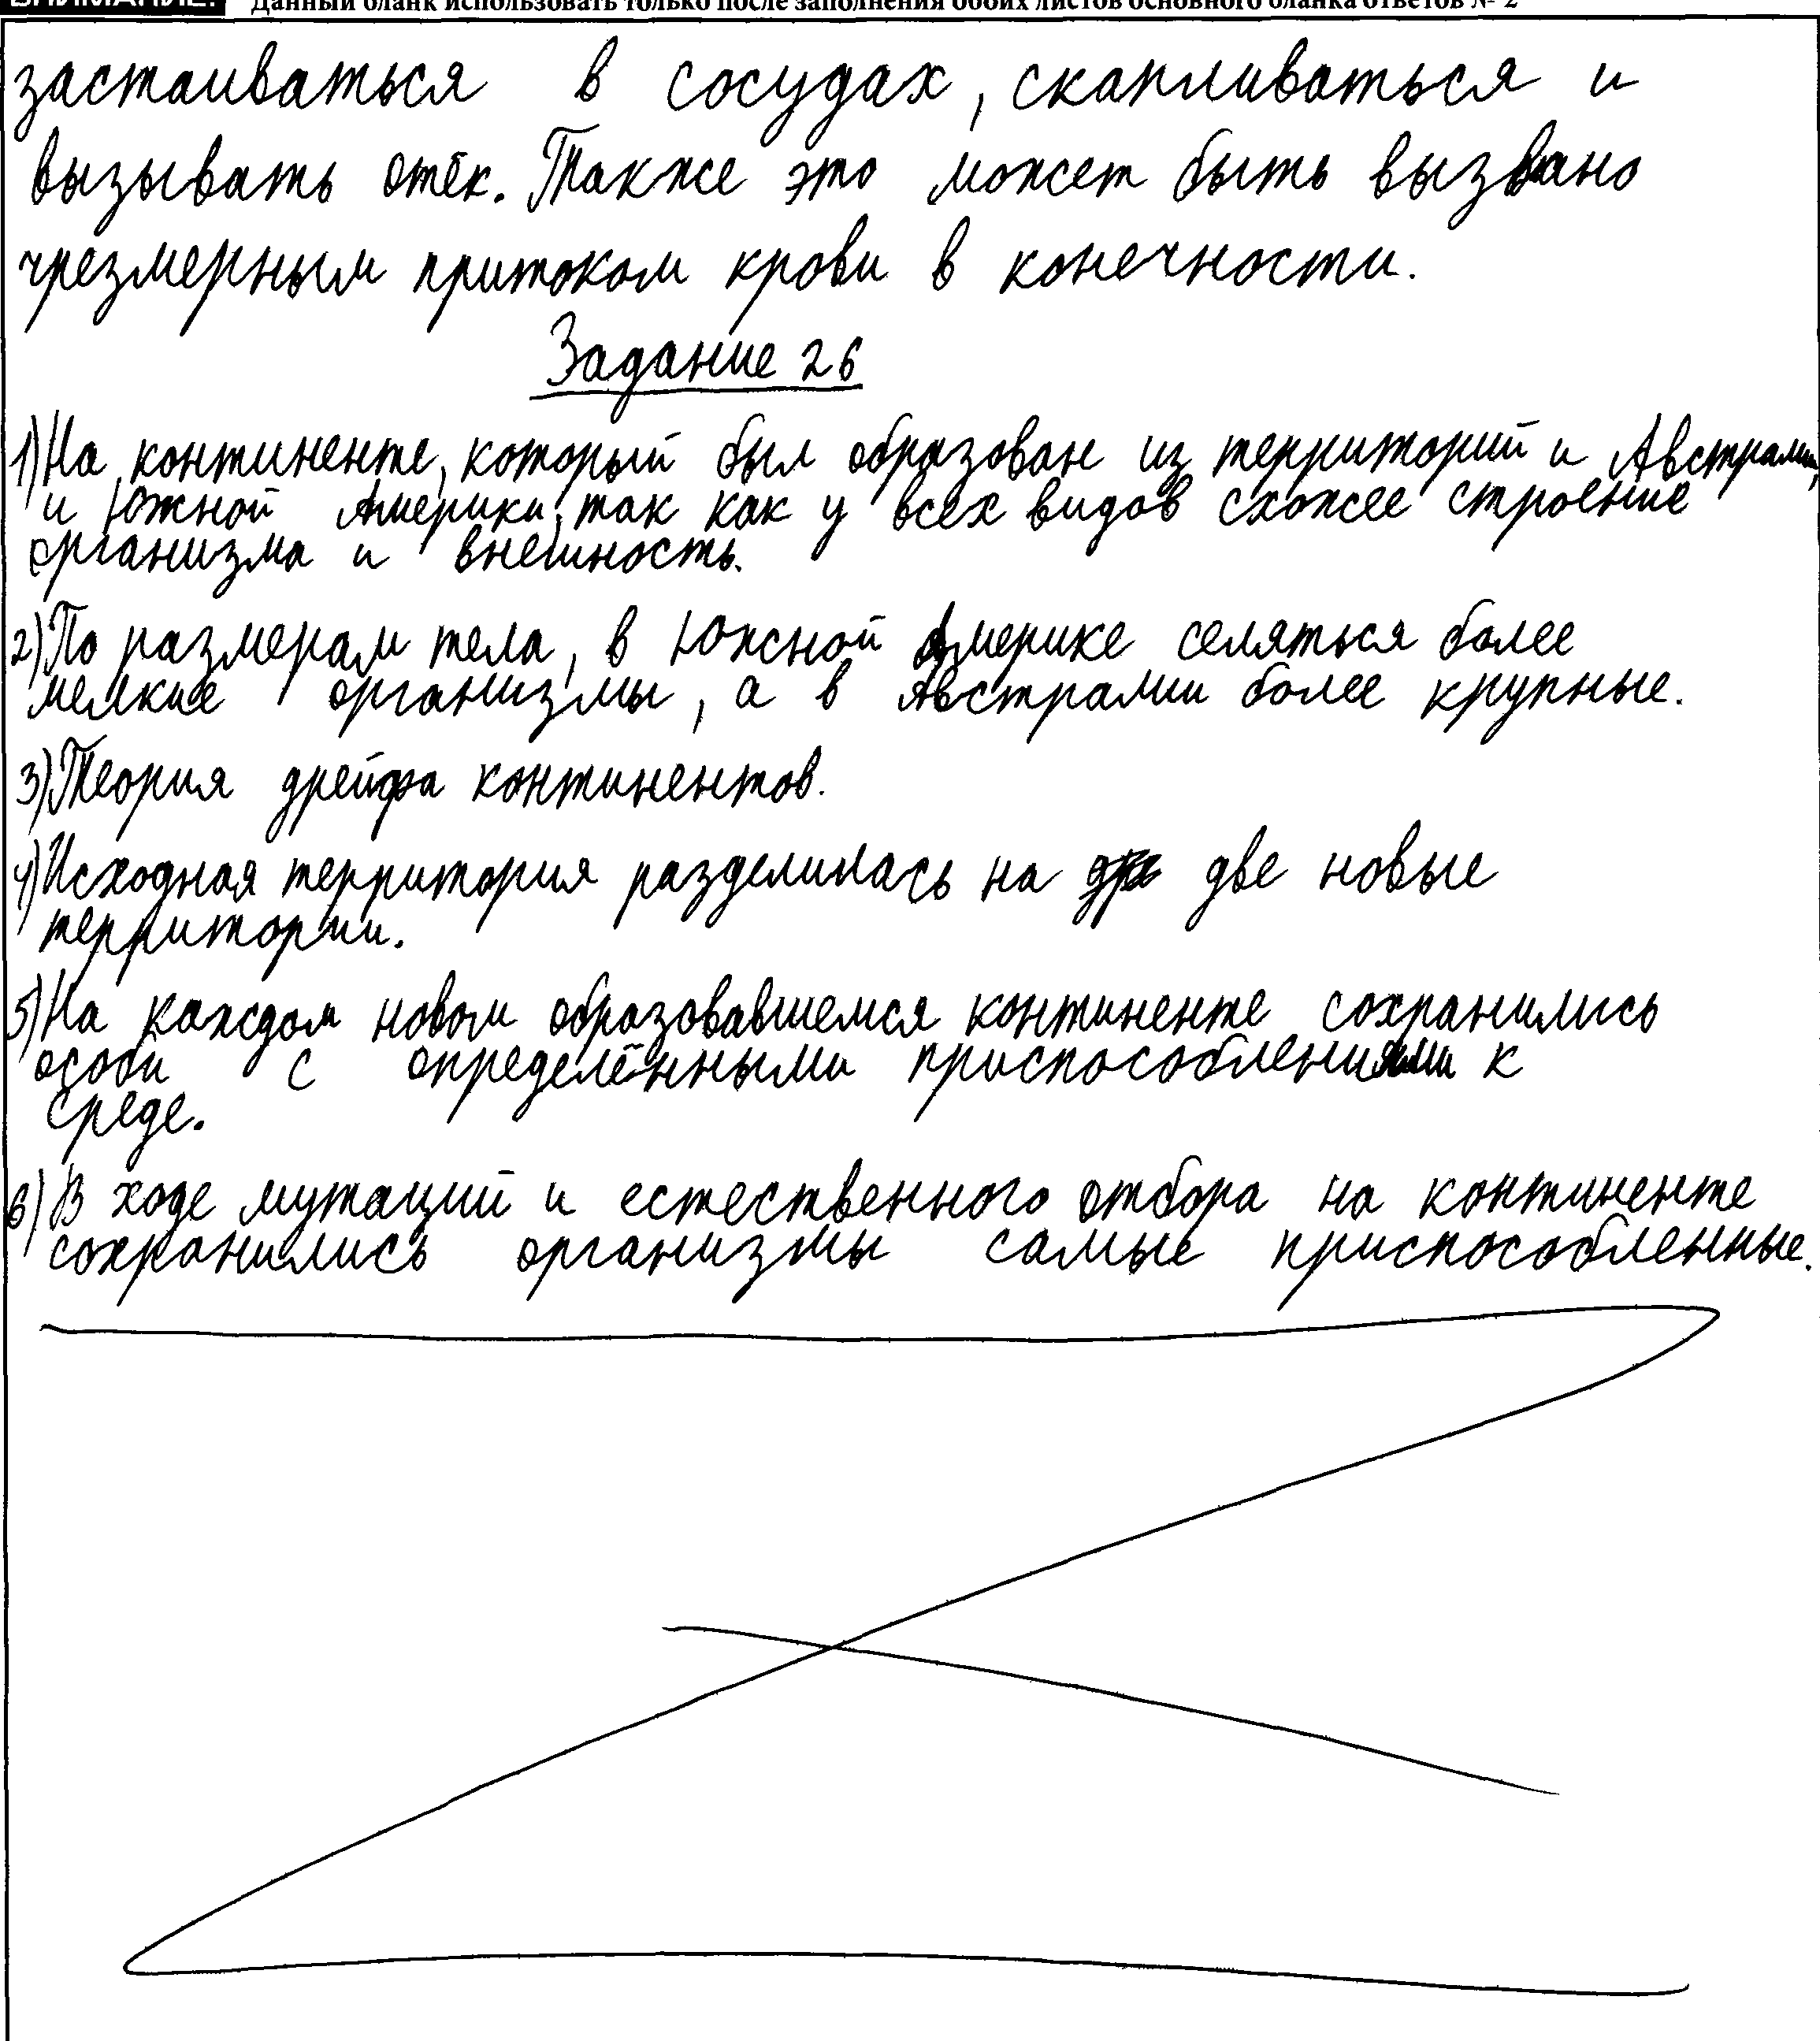 Данный бланк использовать только после заполнения обоих листов основного бланка ответов № 2
застаиваться в сосудах, скапливаться и
вызывать отёк. Также это может быть вызвано
чрезмерным притоком крови в конечности.
Задание 26
1) На континенте, который был образован из территорий и Австралии,
и Южной Америки, так как у всех видов схожее строение
организма и внешность.
2) По размерам тела, в Южной Америке селяться более
мелкие организмы, а в Австралии более крупные.
3) Теория дрейфа континентов.
4) Исходная территория разделилась на две новые
территории.
5) На каждом новом образовавшемся континенте сохранились
особи с определёнными приспособлениями к
среде.
6) В ходе мутаций и естественного отбора на континенте
сохранились организмы самые приспособленные.